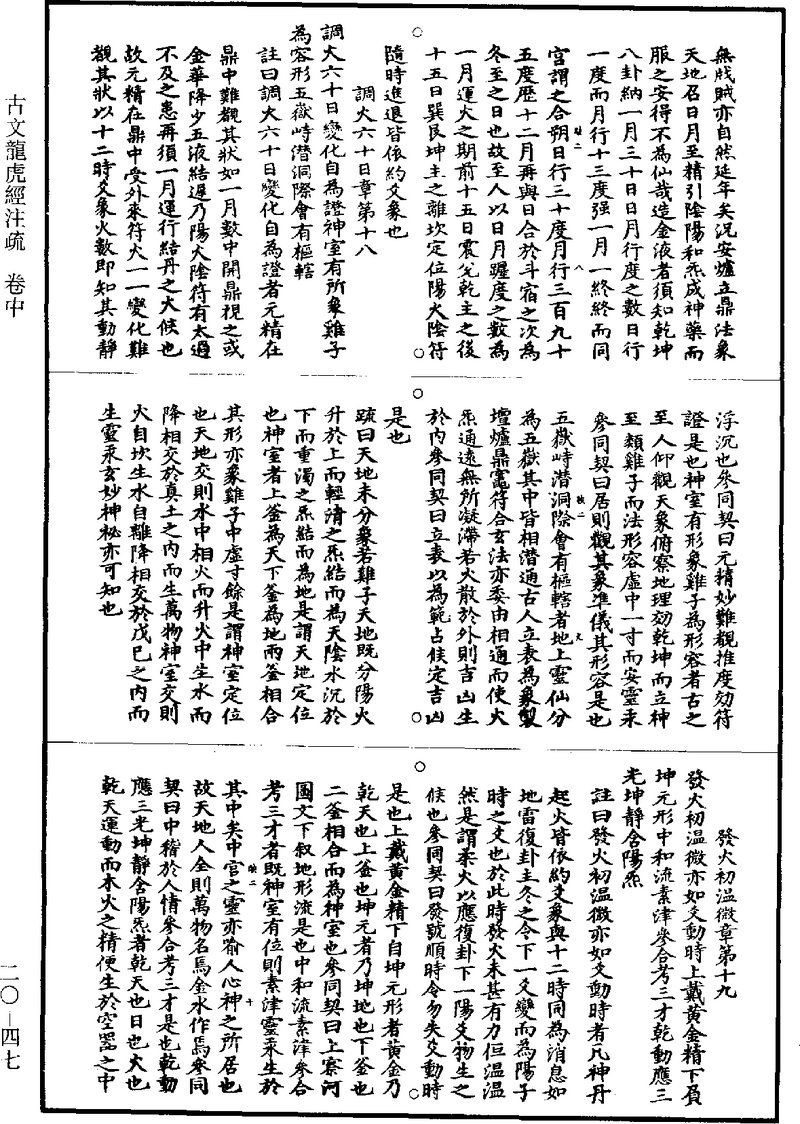 古文龍虎經注疏　卷中
二〇—四七
無戕賊亦自然延年矣況安爐立鼎法象
天地召日月至精引陰陽和炁成神藥而
服之安得不為仙哉造金液者須知乾坤
八卦納一月三十日日月行度之數日行
一度而月行十三度强一月一終終而同
宮謂之合朔日行三十度月行三百九十
五度歷十二月再與日合於斗宿之次為
冬至之日也故至人以日月躔度之數為
一月運火之期前十五日震兌乾主之後
十五日巽艮坤主之離坎定位陽火陰符
隨時進退皆依約爻象也
調火六十日章第十八
調火六十日變化自為證神室有所象雞子
為容形五嶽峙潛洞際會有樞轄
註曰調火六十日變化自為證者元精在
鼎中難觀其狀如一月數中開鼎視之或
金華降少五液結遲乃陽火陰符有太過
不及之患再須一月運行結丹之大候也
故元精在鼎中受外來符火一一變化難
觀其狀以十二時爻象火數即知其動靜
浮沉也參同契曰元精妙難觀推度効符
證是也神室有形象雞子為形容者古之
至人仰觀天象俯察地理効乾坤而立神
至類雞子而法形容虛中一寸而安靈汞
參同契曰居則觀其象準儀其形容是也
五嶽峙潛洞際會有樞轄者地上靈仙分
為五嶽其中皆相潛通古人立表為象製
壇爐鼎竈符合玄法亦委由相通而使火
炁通遠無所凝滯若火散於外則吉凶生
於內參同契曰立表以為範占候定吉凶
是也
疏曰天地未分象若雞子天地既分陽火
升於上而輕清之炁結而為天陰水沉於
下而重濁之炁結而為地是謂天地定位
也神室者上釜為天下釜為地兩釜相合
其形亦象雞子中虛寸餘是謂神室定位
也天地交則水中相火而升火中生水而
降相交於真土之內而生萬物神室交則
火自坎生水自離降相交於戊巳之內而
生靈汞玄妙神秘亦可知也
發火初温微章第十九
發火初温微亦如爻動時上戴黃金精下負
坤元形中和流素津參合考三才乾動應三
光坤靜含陽炁
註曰發火初温微亦如爻動時者凡神丹
起火皆依約爻象與十二時同為消息如
地雷復卦主冬之令下一爻變而為陽子
時之文也於此時發火未甚有力但温温
然是謂柔火以應復卦下一陽爻物生之
候也參同契曰發號順時令勿失爻動時
是也上戴黃金精下自坤元形者黃金乃
乾天也上釜也坤元者乃坤地也下釜也
二釜相合而為神室也參同契曰上察河
圖文下叙地形流是也中和流素津參合
考三才者既神室有位則素津靈汞生於
其中矣中宮之靈亦喻人心神之所居也
故天地人全則萬物名焉金水作焉參同
契曰中稽於人情參合考三才是也乾動
應三光坤靜含陽炁者乾天也日也火也
乾天運動而木火之精便生於空器之中